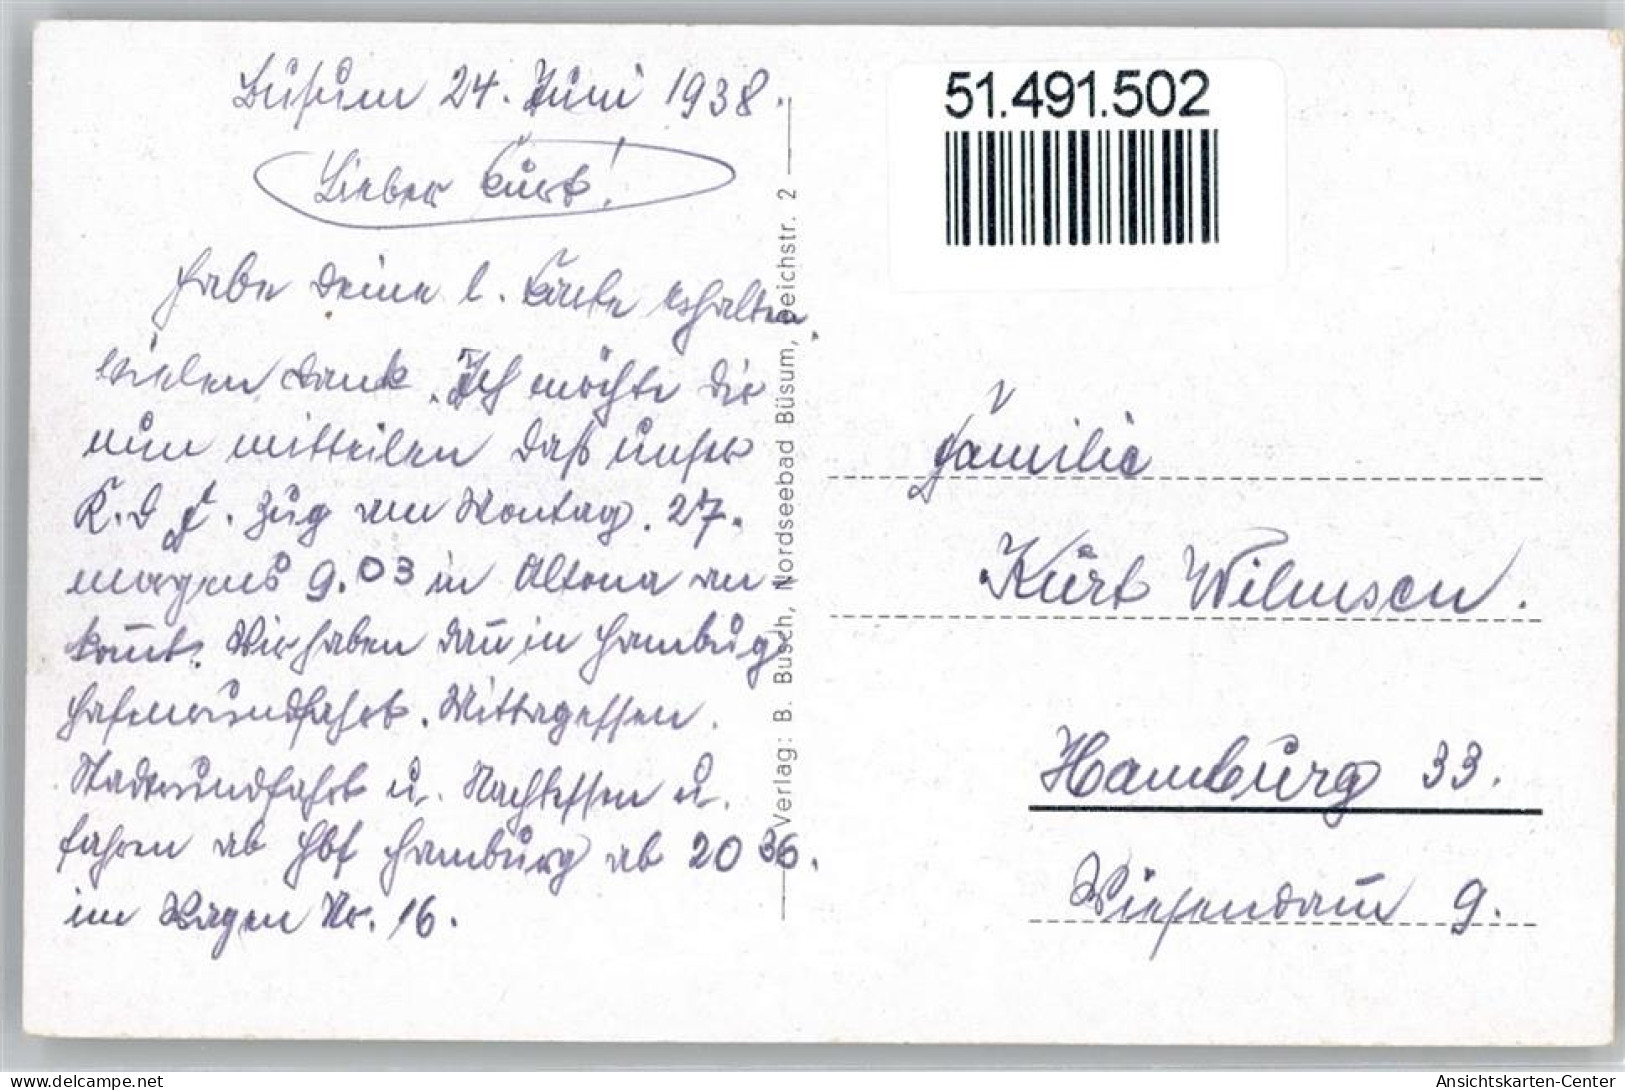 Büsum 24. Juni 1938.
Lieber Kurt!
Habe Deine l. Karte erhalten,
vielen Dank. Ich möchte Dir
nun mitteilen daß unser
K.d.F. Zug am Montag. 27.
morgens 9.03 in Altona an-
kommt. Wir haben dann in Hamburg
Hafenrundfahrt. Mittagessen.
Stadtrundfahrt u. Nachtessen u.
fahren ab Hbf Hamburg ab 20 36.
im Wagen Nr. 16.
Verlag: B. Busch, Nordseebad Büsum, Deichstr. 2
51.491.502
Familie
Kurt Wilmsen.
Hamburg 33.
Wiesendamm 9.
delcampe.net
Ansichtskarten-Center